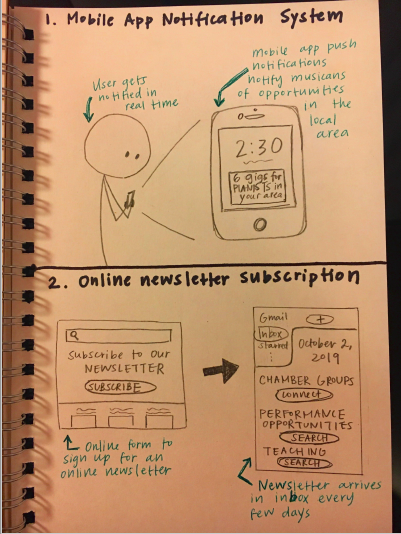 1. Mobile App Notification System
User gets
notified in
real time
Mobile app push
notifications
notify musicans
of opportunities
in the
local
area
2:30
6 gigs for
PIANISTS in
your area
2. Online newsletter subscription
Subscribe to our
NEWSLETTER
SUBSCRIBE
Online form to
sign up for an
online newsletter
Gmail
+
Inbox
Starred
October 2,
2019
CHAMBER GROUPS
connect
PERFORMANCE
OPPORTUNITIES
SEARCH
TEACHING
SEARCH
Newsletter arrives
in inbox every
few days